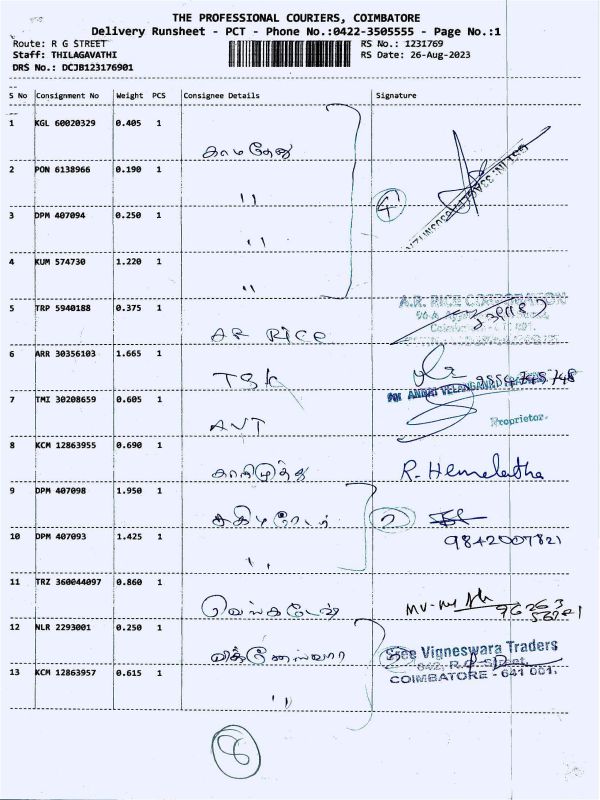 THE PROFESSIONAL COURIERS, COIMBATORE
Delivery Runsheet - PCT - Phone No.:0422-3505555 - Page No.:1
Route: R G STREET
Staff: THILAGAVATHI
DRS No.: DCJB123176901
RS No.: 1231769
RS Date: 26-Aug-2023
S No Consignment No Weight PCS Consignee Details Signature
1 KGL 60020329 0.405 1 காமதேனு
2 PON 6138966 0.190 1 "
3 DPM 407094 0.250 1 "
4 KUM 574730 1.220 1 "
4
5 TRP 5940188 0.375 1 AR RICE A.R. RICE CORPORATION
6 ARR 30356103 1.665 1 TSK
7 TMI 30208659 0.605 1 ANT Proprietor.
8 KCM 12863955 0.690 1 R. Hemalatha
9 DPM 407098 1.950 1 2
10 DPM 407093 1.425 1 " 9842007821
11 TRZ 360044097 0.860 1 வெங்கடேஷ்
12 NLR 2293001 0.250 1 விக்னேஸ்வரா Sree Vigneswara Traders
842, R.G. Street,
COIMBATORE - 641 001.
13 KCM 12863957 0.615 1 "
8